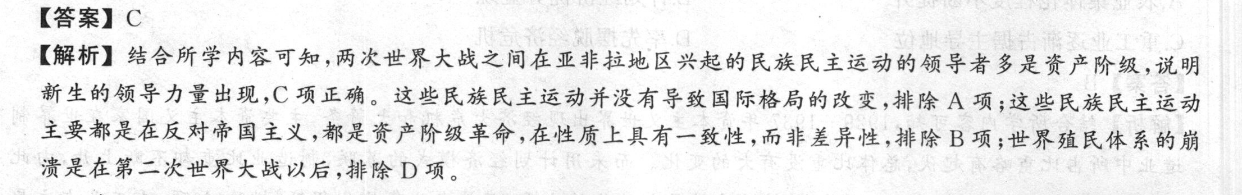 【答案】C
【解析】结合所学内容可知,两次世界大战之间在亚非拉地区兴起的民族民主运动的领导者多是资产阶级,说明
新生的领导力量出现,C项正确。这些民族民主运动并没有导致国际格局的改变,排除A项;这些民族民主运动
主要都是在反对帝国主义,都是资产阶级革命,在性质上具有一致性,而非差异性,排除B项;世界殖民体系的崩
溃是在第二次世界大战以后,排除D项。